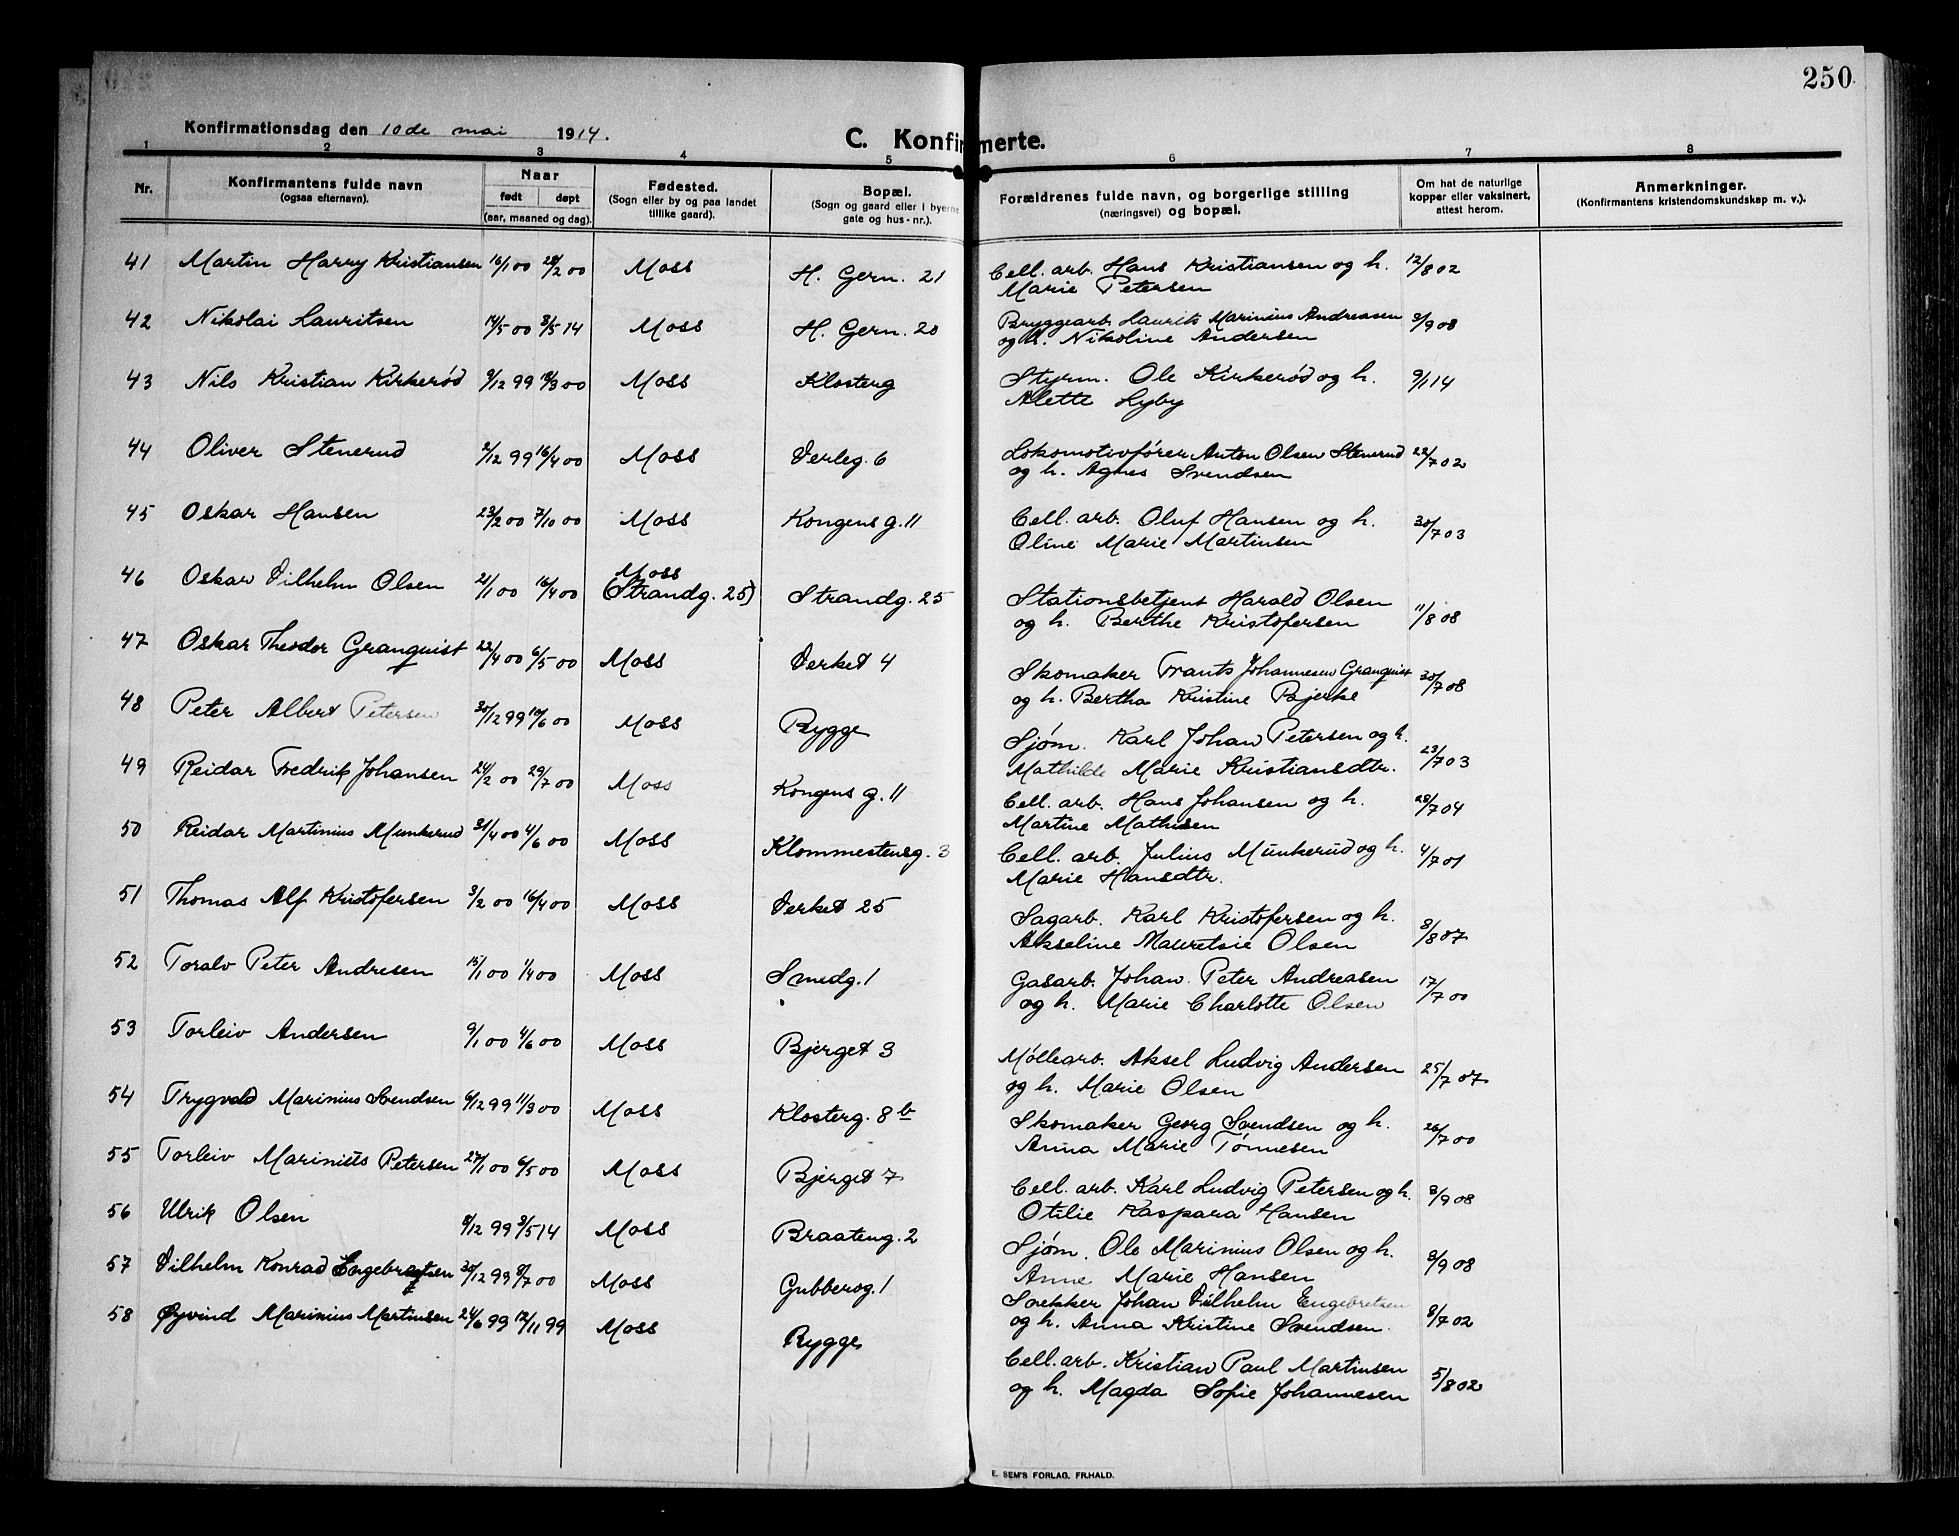 250
Konfirmationsdag den 10de mai 1914.
C. Konfirmerte.
1 2 3 4 5 6 7 8
Nr.
Konfirmantens fulde navn
(ogsaa efternavn).
Naar
født døpt
(aar, maaned og dag).
Fødested.
(Sogn eller by og paa landet
tillike gaard).
Bopæl.
(Sogn og gaard eller i byerne
gate og hus-nr.).
Forældrenes fulde navn, og borgerlige stilling
(næringsvei) og bopæl.
Om hat de naturlige
kopper eller vaksinert,
attest herom.
Anmerkninger.
(Konfirmantens kristendomskundskap m. v.).
41 Martin Harry Kristiansen 16/1 00 28/2 00 Moss H. Gern. 21 Cell. arb. Hans Kristiansen og h. 12/8 02
Marie Petersen
42 Nikolai Lauritsen 14/5 00 3/5 14 Moss H. Gern. 20 Bryggearb. Laurits Marinius Andreasen 3/9 08
og h. Nikoline Andersen
43 Nils Kristian Kirkerød 9/12 99 18/3 00 Moss Klosterg Styrm. Ole Kirkerød og h. 9/1 14
Alette Lyby
44 Oliver Stenerud 2/12 99 16/4 00 Moss Verleg. 6 Lokomotivfører Anton Olsen Stenerud 22/7 02
og h. Agnes Svendsen
45 Oskar Hansen 23/2 00 7/10 00 Moss Kongens g. 11 Cell. arb. Oluf Hansen og h. 30/7 03
Oline Marie Martinsen
46 Oskar Vilhelm Olsen 21/1 00 16/4 00 Moss
(Strandg. 25) Strandg. 25 Stationsbetjent Harald Olsen 11/8 08
og h. Berthe Kristofersen
47 Oskar Theodor Granquist 22/4 00 6/5 00 Moss Verket 4 Skomaker Frants Johannesen Granquist 30/7 08
og h. Bertha Kristine Bjerke
48 Peter Albert Petersen 30/12 99 10/6 00 Moss Rygge Sjøm. Karl Johan Petersen og h. 23/7 03
Mathilde Marie Kristiansdtr.
49 Reidar Fredrik Johansen 24/2 00 29/7 00 Moss Kongens g. 11 Cell. arb. Hans Johansen og h. 28/7 04
Martine Mathisen
50 Reidar Martinius Munkerud 31/4 00 4/6 00 Moss Klommestensg. 3 Cell. arb. Julius Munkerud og h. 4/7 01
Marie Hansdtr.
51 Thomas Alf Kristofersen 3/2 00 16/4 00 Moss Verket 25 Sagarb. Karl Kristofersen og h. 8/8 07
Akseline Mauretsie Olsen
52 Toralv Peter Andresen 15/1 00 1/4 00 Moss Smedg. 1 Gasarb. Johan Peter Andreasen 17/7 00
og h. Marie Charlotte Olsen
53 Torleiv Andersen 9/1 00 4/6 00 Moss Bjerget 3 Møllearb. Aksel Ludvig Andersen 25/7 07
og h. Marie Olsen
54 Trygvald Marinius Svendsen 6/12 99 11/3 00 Moss Klosterg. 8b Skomaker Georg Svendsen og h. 26/7 00
Anna Marie Tønnesen
55 Torleiv Marinius Petersen 27/1 00 6/5 00 Moss Bjerget 7 Cell. arb. Karl Ludvig Petersen og h. 3/9 08
Otilie Kaspara Hansen
56 Ulrik Olsen 8/12 99 3/5 14 Moss Braateng. 2 Sjøm. Ole Marinius Olsen og h. 3/9 08
Anne Marie Hansen
57 Vilhelm Konrad Engebretsen 30/12 99 8/7 00 Moss Gubberog. 1 Snekker Johan Vilhelm Engebretsen 8/7 02
og h. Anna Kristine Svendsen.
58 Øyvind Marinius Martinsen 24/6 99 12/11 99 Moss Rygge Cell. arb. Kristian Paul Martinsen 5/8 02
og h. Magda Sofie Johannesen
E. SEM'S FORLAG, FR.HALD.